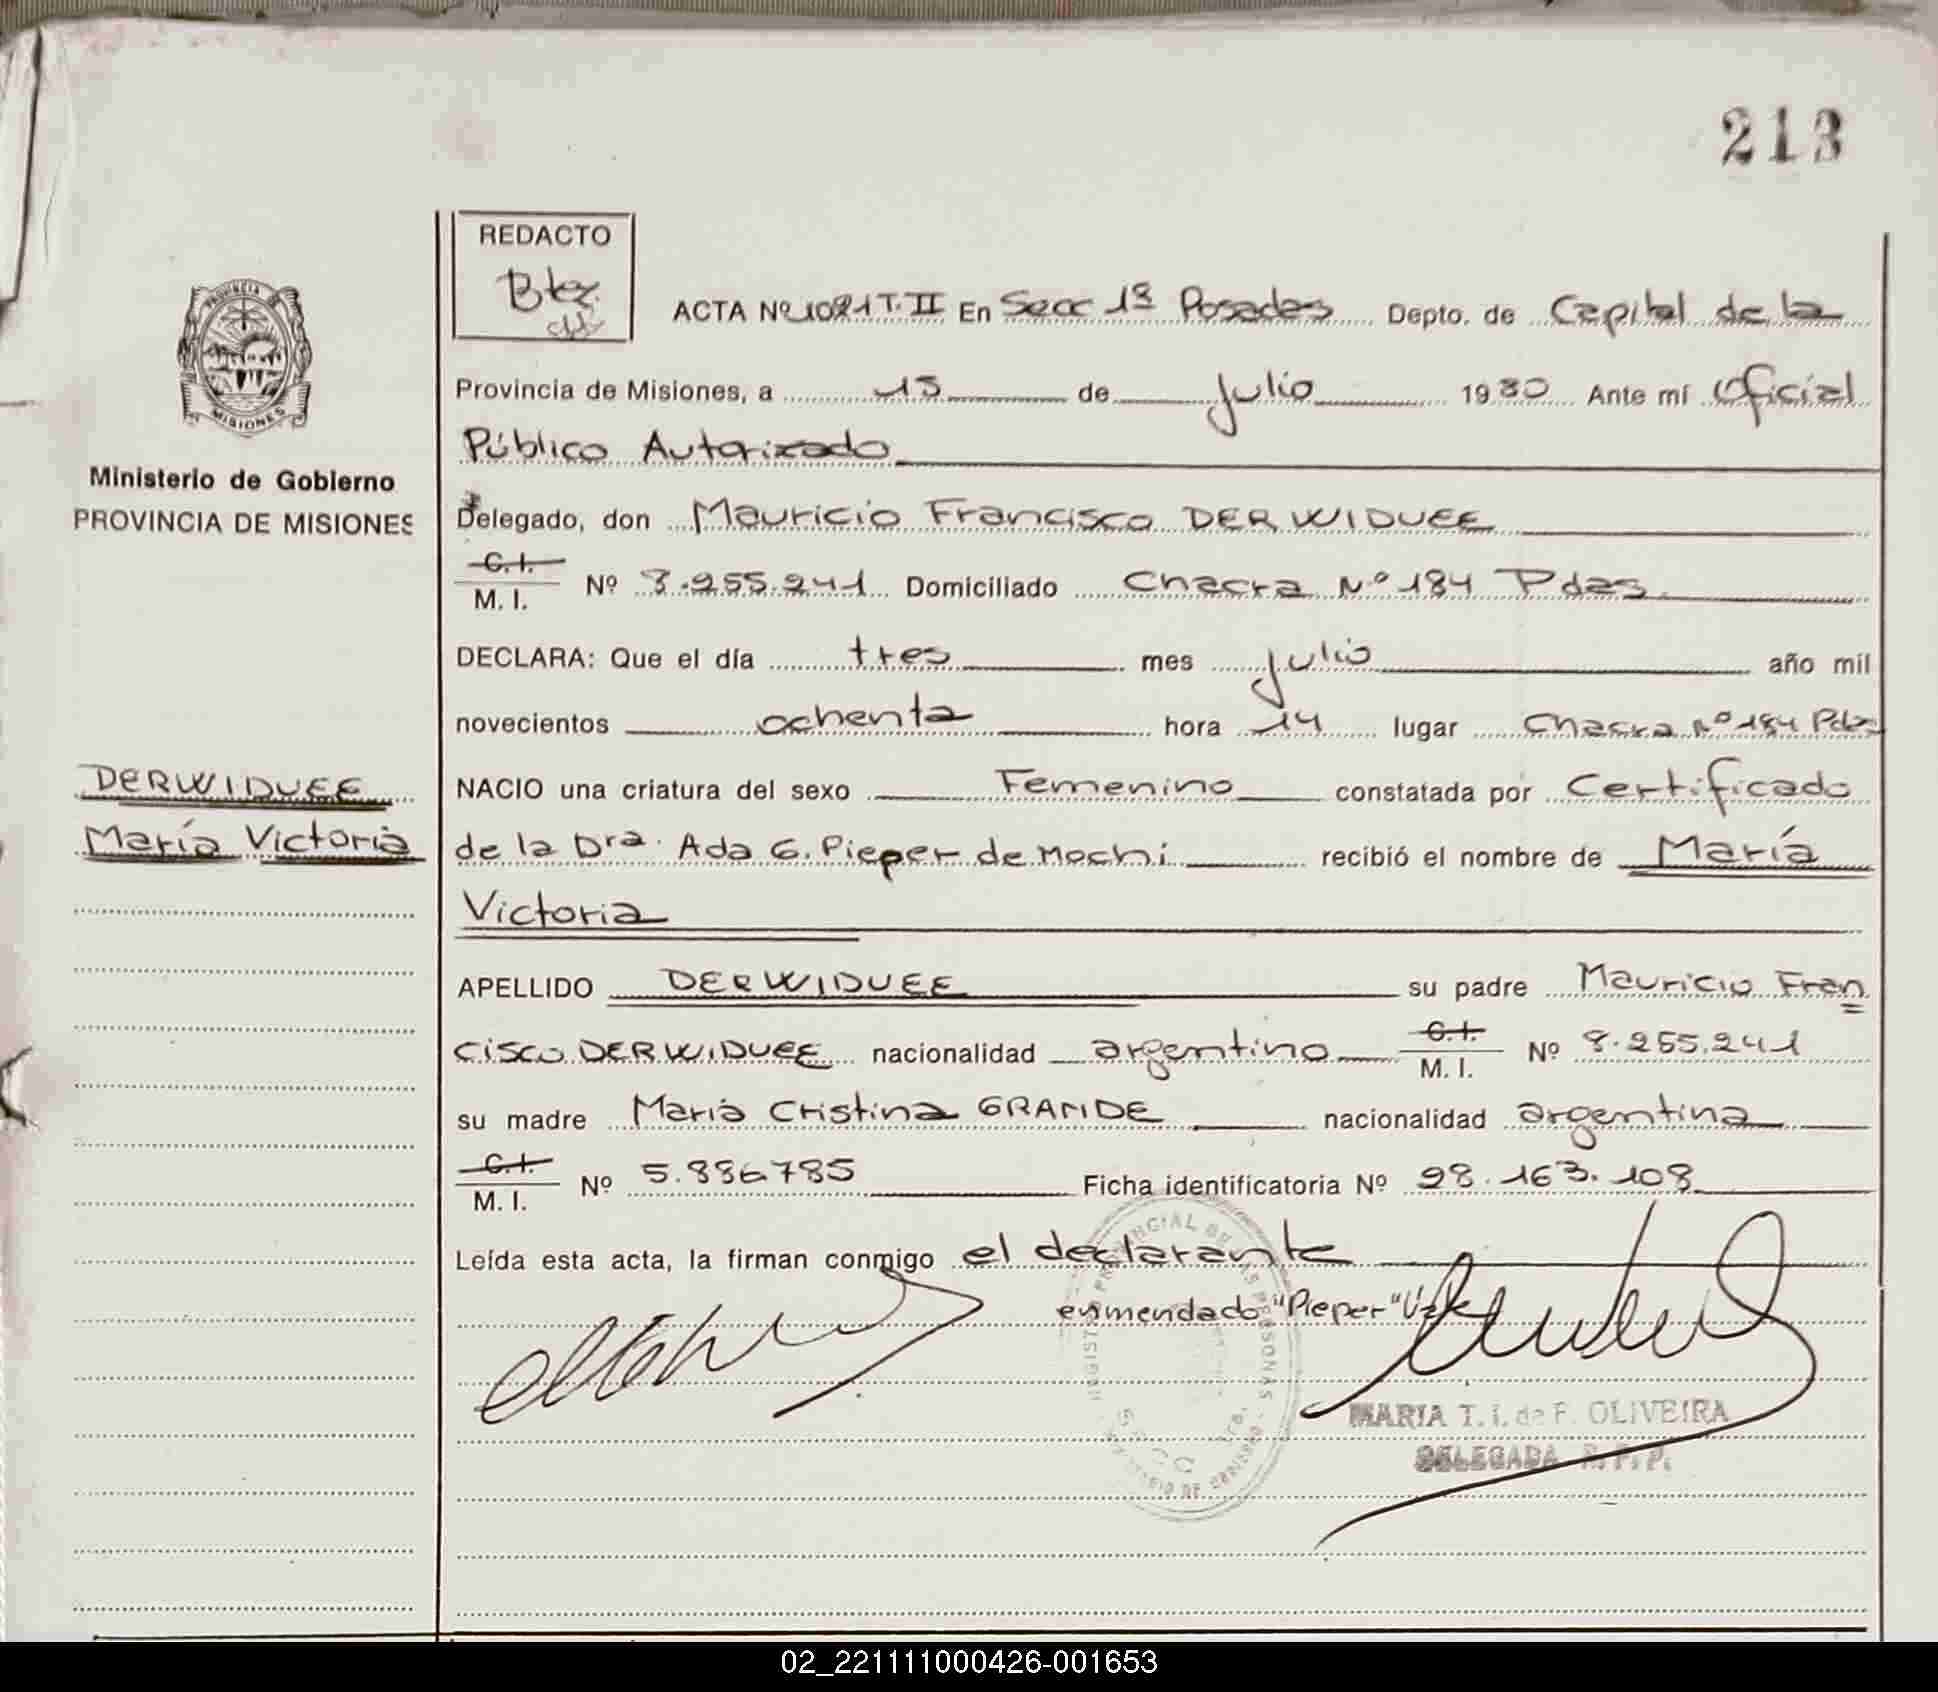 213
REDACTO
Btez.
PROVINCIA DE
MISIONES
ACTA Nº 1021 T. II En Secc 1ª Posadas Depto. de Capital de la
Provincia de Misiones, a 15 de Julio 1980 Ante mí Oficial
Público Autorizado
Ministerio de Gobierno
PROVINCIA DE MISIONES
Delegado, don Mauricio Francisco DERWIDUEE
C.I.
M. I. Nº 8.255.241 Domiciliado Chacra Nº 184 Pdas.
DECLARA: Que el día tres mes julio año mil
novecientos ochenta hora 14 lugar Chacra Nº 184 Pdas
DERWIDUEE
María Victoria
NACIO una criatura del sexo Femenino constatada por Certificado
de la Dra. Ada G. Pieper de Mochi recibió el nombre de María
Victoria
APELLIDO DERWIDUEE su padre Mauricio Fran
cisco DERWIDUEE nacionalidad argentino C.I. M. I. Nº 8.255.241
su madre María Cristina GRANDE nacionalidad argentina
C.I.
M. I. Nº 5.886785 Ficha identificatoria Nº 28.163.108
Leída esta acta, la firman conmigo el declarante
enmendado "Pieper"
REGISTRO PROVINCIAL DE LAS PERSONAS
MARIA T. I. de F. OLIVEIRA
DELEGADA R. P. P.
02_221111000426-001653